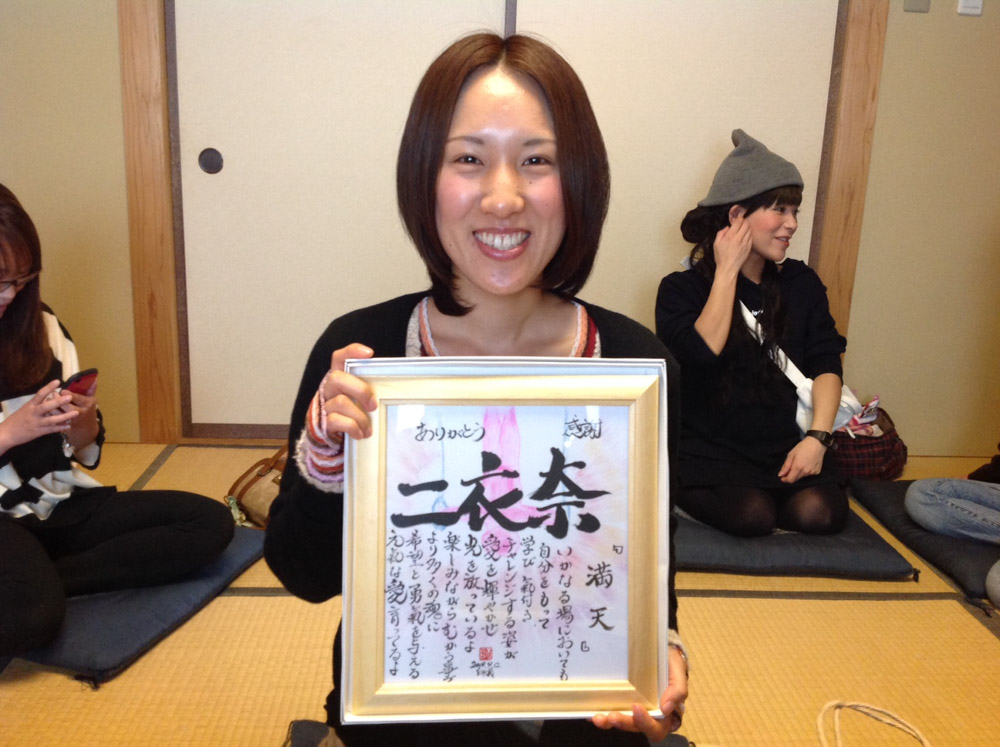 ありがとう
感謝
二衣奈
「満天」
いかなる場においても
自分をもって
学び 氣付き
チャレンジする姿が
愛を輝やかせ
光を放っているよ
楽しみながらむかう事が
より多くの魂に
希望と勇氣を与える
元氣な愛育ってるよ